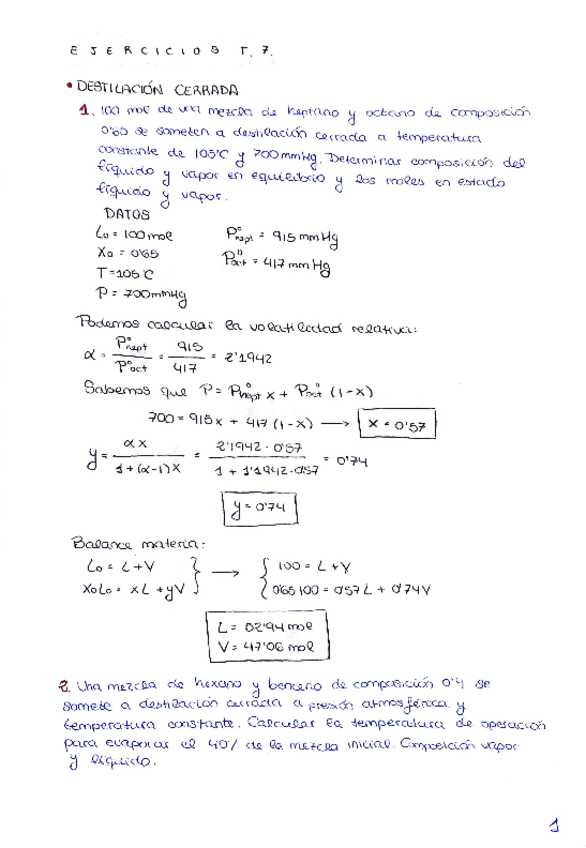 EJERCICIOS T.7.
• DESTILACIÓN CERRADA
1. 100 mol de una mezcla de heptano y octano de composición
0'65 se someten a destilación cerrada a temperatura
constante de 105°C y 700mmHg. Determinar composición del
líquido y vapor en equilibrio y los moles en estado
líquido y vapor.
DATOS
L₀ = 100mol P°hept = 915 mmHg
X₀ = 0'65 P°oct = 417 mmHg
T = 105°C
P = 700mmHg
Podemos calcular la volatilidad relativa:
α = P°hept / P°oct = 915 / 417 = 2'1942
Sabemos que P = P°hept x + P°oct (1-x)
700 = 915x + 417 (1-x) → x = 0'57
y = αx / 1+(α-1)x = 2'1942 · 0'57 / 1 + 1'1942·0'57 = 0'74
y = 0'74
Balance materia:
L₀ = L+V → 100 = L+V
X₀L₀ = xL + yV 0'65 100 = 0'57L + 0'74V
L = 52'94 mol
V = 47'06 mol
2. Una mezcla de hexano y benceno de composición 0'4 se
somete a destilación cerrada a presión atmosférica y
temperatura constante. Calcular la temperatura de operación
para evaporar el 40% de la mezcla inicial. Composición vapor
y líquido.
1